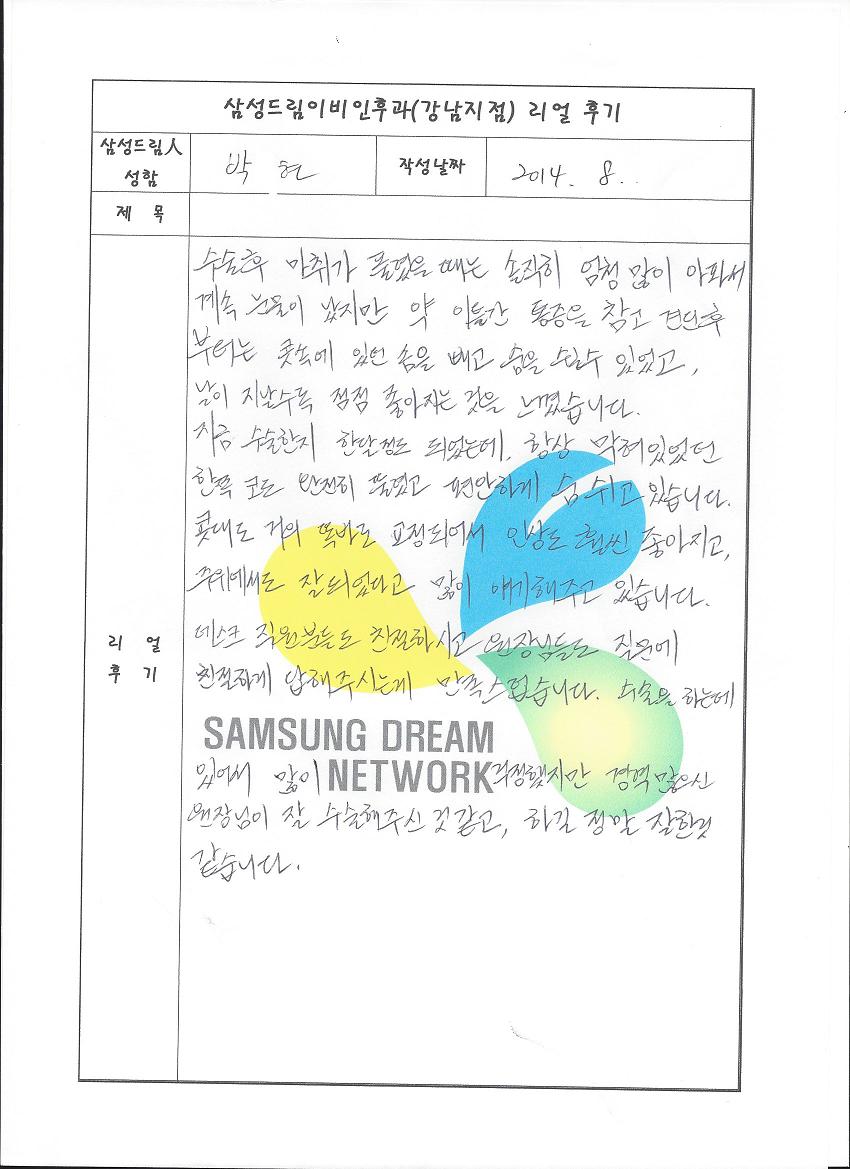 삼성드림이비인후과(강남지점) 리얼 후기
삼성드림人
성함
박 현
작성날짜
2014. 8. .
제 목
수술후 마취가 풀렸을 때는 솔직히 엄청 많이 아파서
계속 눈물이 났지만 약 이틀간 통증을 참고 견딘후
부터는 콧속에 있던 솜을 빼고 숨을 쉴수 있었고,
날이 지날수록 점점 좋아지는 것을 느꼈습니다.
지금 수술한지 한달정도 되었는데, 항상 막혀있었던
한쪽 코도 완전히 뚫렸고 편안하게 숨 쉬고 있습니다.
콧대도 거의 똑바로 교정되어서 인상도 훨씬 좋아지고,
주위에서도 잘되었다고 많이 얘기해주고 있습니다.
리 얼
후 기
데스크 직원분들도 친절하시고 원장님들도 질문에
친절하게 답해주시는게 만족스럽습니다. 수술을 하는데
SAMSUNG DREAM
NETWORK
있어서 많이 걱정했지만 경력많으신
원장님이 잘 수술해주신 것 같고, 하길 정말 잘한것
같습니다.